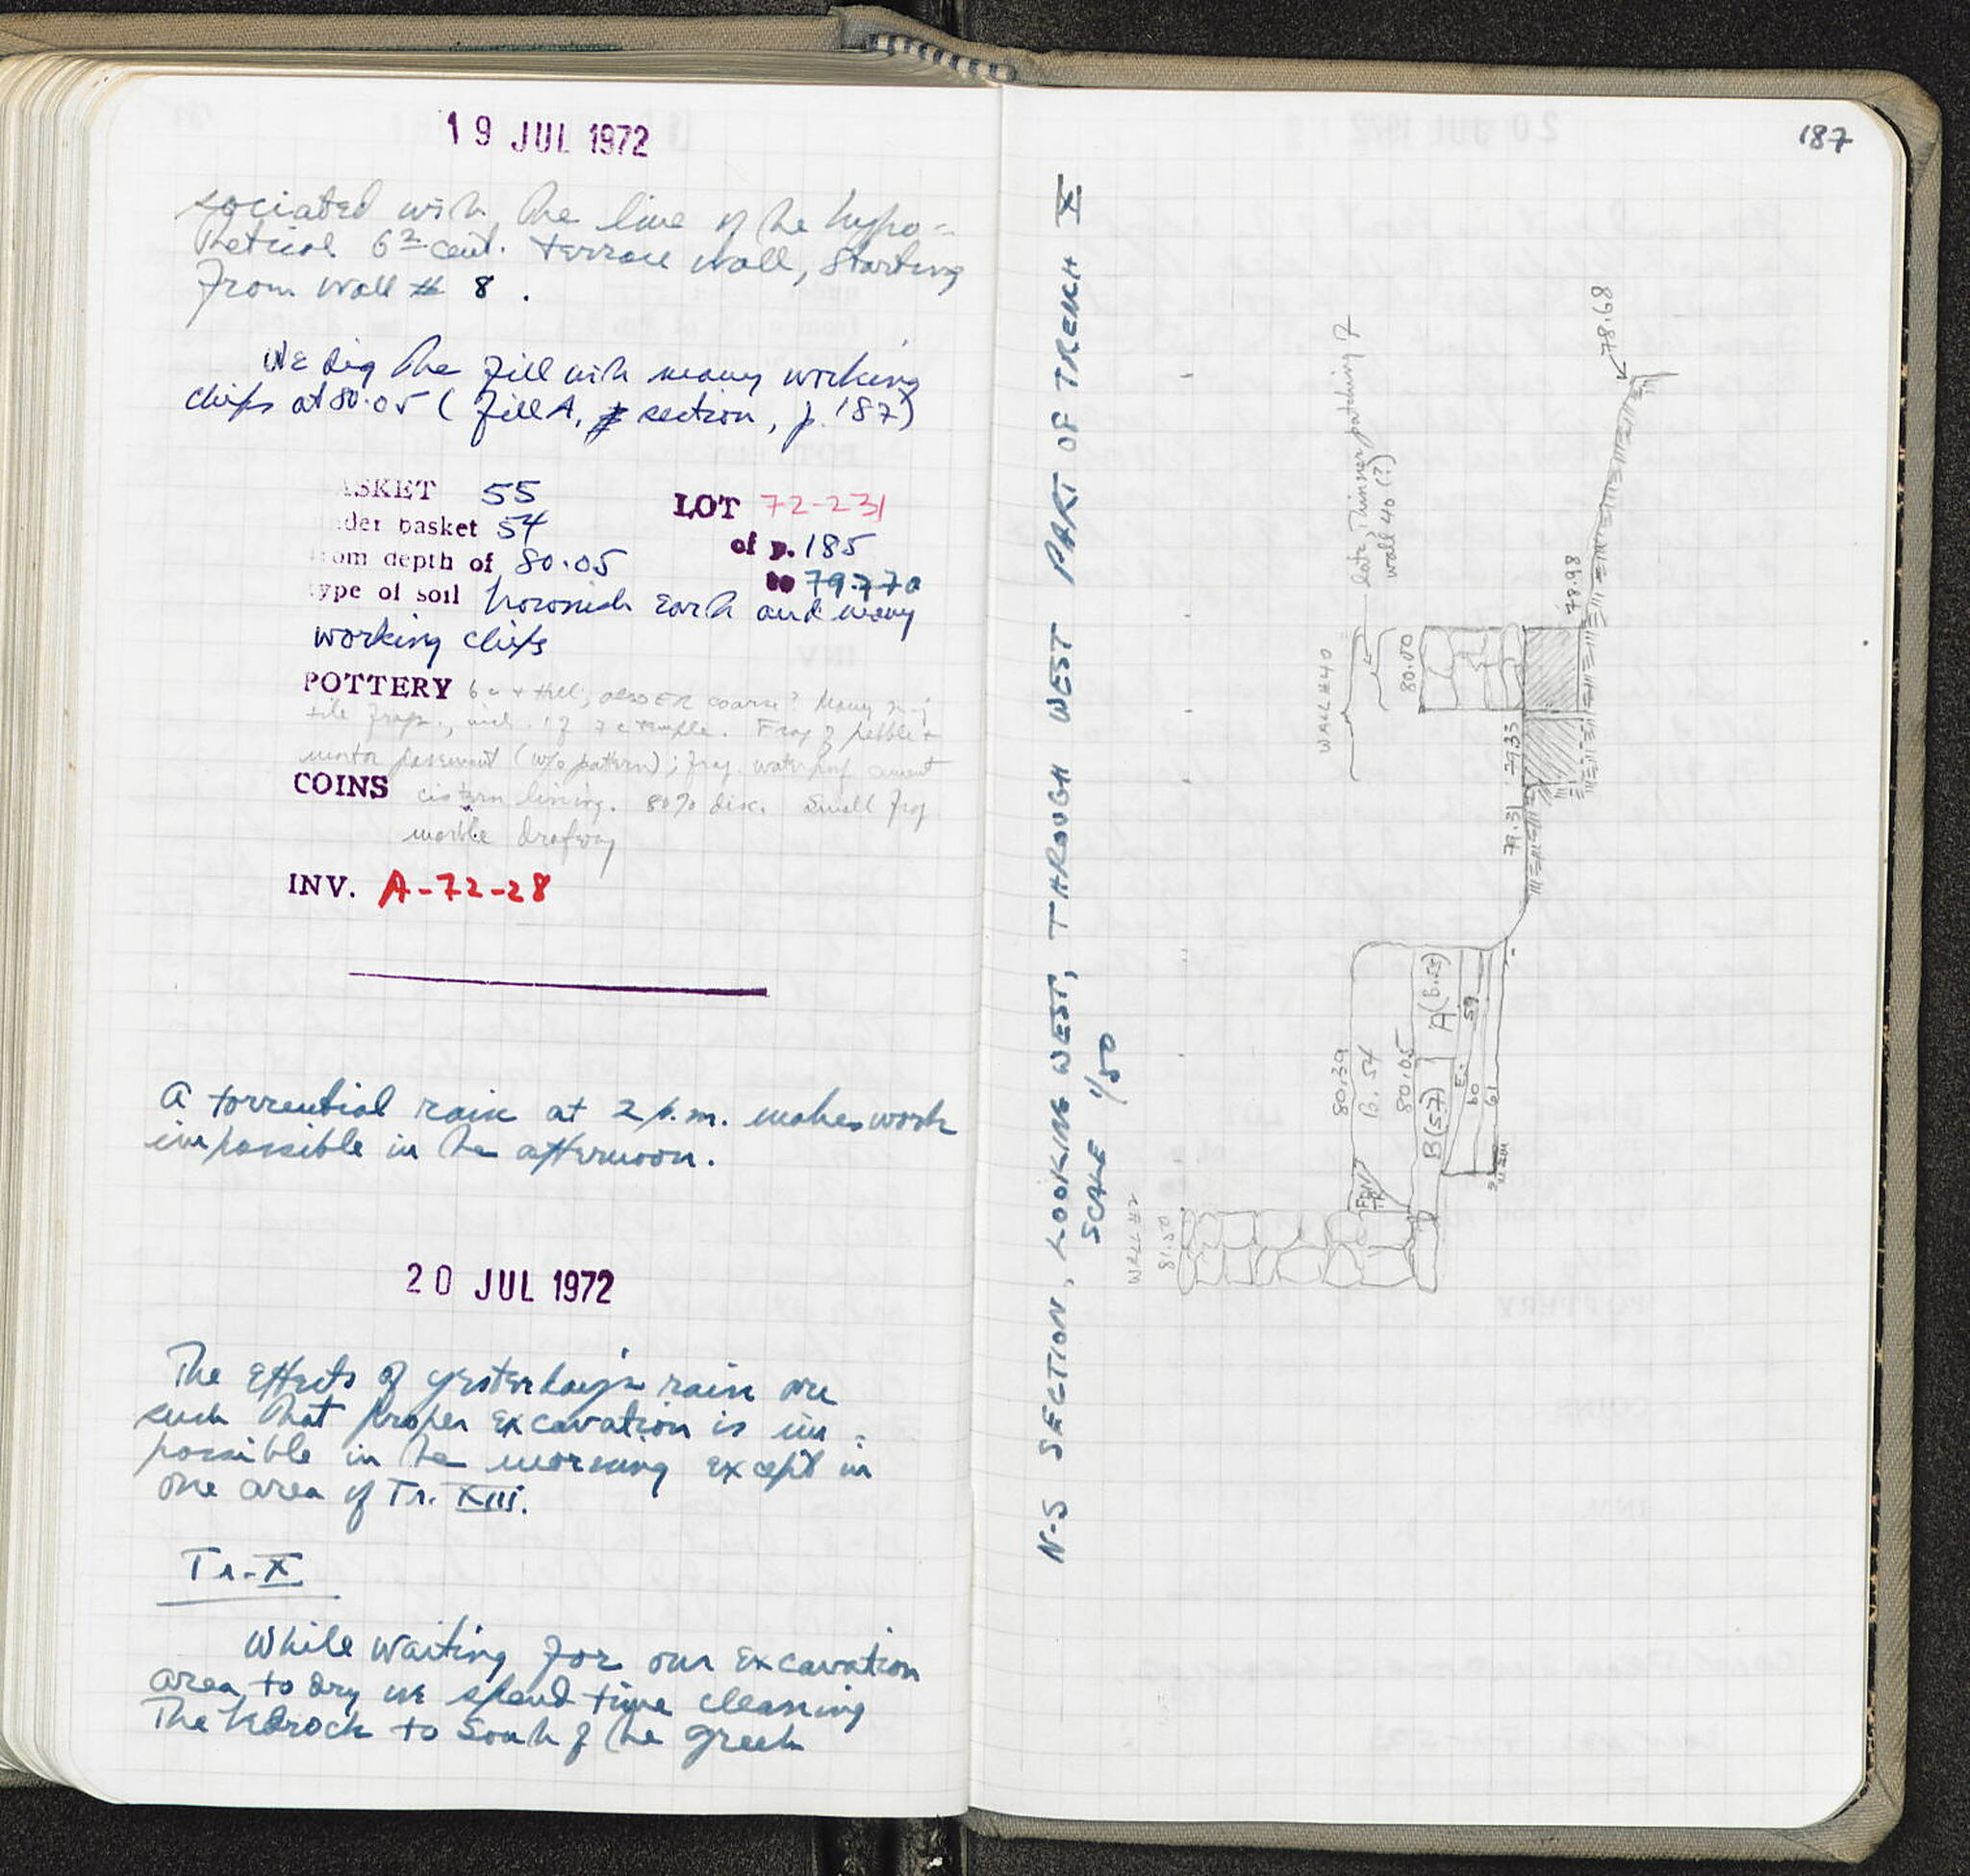 19 JUL 1972
sociated with the line of the hypo=
thetical 6th cent. terrace wall, starting
from wall # 8 .
We dig the fill with many working
chips at 80.05 ( fill A, section, p. 187)
ASKET 55
LOT 72-231
nder basket 54
of p. 185
om depth of 80.05
to 79.770
ype of soil brownish earth and many
working chips
POTTERY 6 c + Hell; also ER coarse? Many
tile frags., incl. of 7 c temple. Frag of pebble +
mortar pavement (w/o pattern); frag. waterproof cement
COINS cistern lining. 80% disc. Small frag
marble
INV. A-72-28
A torrential rain at 2 p.m. makes work
impossible in the afternoon.
20 JUL 1972
The effects of yesterday's rain are
such that proper excavation is im =
possible in the morning except in
one area of Tr. XIII.
Tr. X
While waiting for our excavation
area to dry we spend time cleaning
the bedrock to South of the Greek
187
N-S SECTION, LOOKING WEST, THROUGH WEST PART OF TRENCH X
SCALE 1/50
WALL #2
81.50
80.39
B. 54
80.05
B(57)
A(B.55)
E.
59
60
61
WALL #40
late, thinner patching of
wall 40 (?)
80.00
79.31
79.35
78.98
78.68